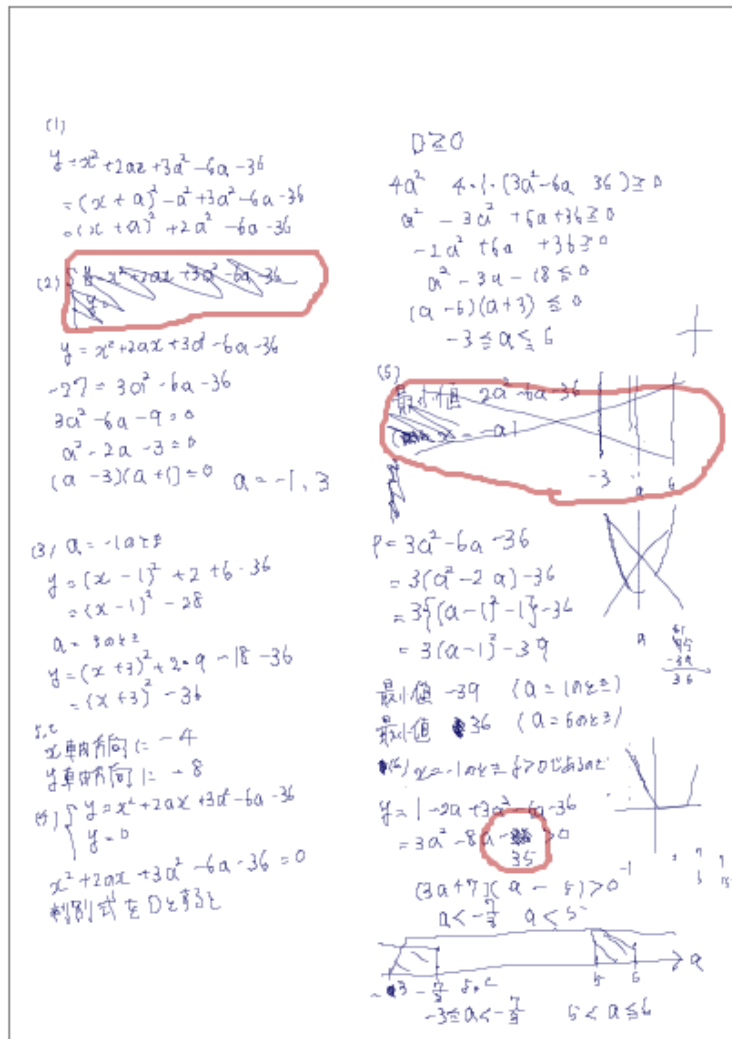 (1)
y=x²+2ax+3a²-6a-36
=(x+a)²-a²+3a²-6a-36
=(x+a)²+2a²-6a-36
(2)
y=x²+2ax+3a²-6a-36
y=x²+2ax+3a²-6a-36
-27=3a²-6a-36
3a²-6a-9=0
a²-2a-3=0
(a-3)(a+1)=0 a=-1,3
(3) a=-1のとき
y=(x-1)²+2+6-36
=(x-1)²-28
a=3のとき
y=(x+3)²+2・9-18-36
=(x+3)²-36
よって
x軸方向に-4
y軸方向に-8
(4) y=x²+2ax+3a²-6a-36
y=0
x²+2ax+3a²-6a-36=0
判別式をDとすると
D≧0
4a² 4・1・(3a²-6a 36)≧0
a²-3a²+6a+36≧0
-2a²+6a+36≧0
a²-3a-18≦0
(a-6)(a+3)≦0
-3≦a≦6
(5)
最小値 2a²-6a-36
x=-a
-3 a 6
P=3a²-6a-36
=3(a²-2a)-36
=3{(a-1)²-1}-36
=3(a-1)²-39
a
-39
36
最小値 -39 (a=1のとき)
最小値 36 (a=6のとき)
x=-1のとき y>0であるので
y=1-2a+3a²-6a-36
=3a²-8a- >0
35
(3a+7)(a-5)>0
-1
a<-7/3 a<5
a
3 -7/3 よって 5 6
-3≦a<-7/3 5<a≦6